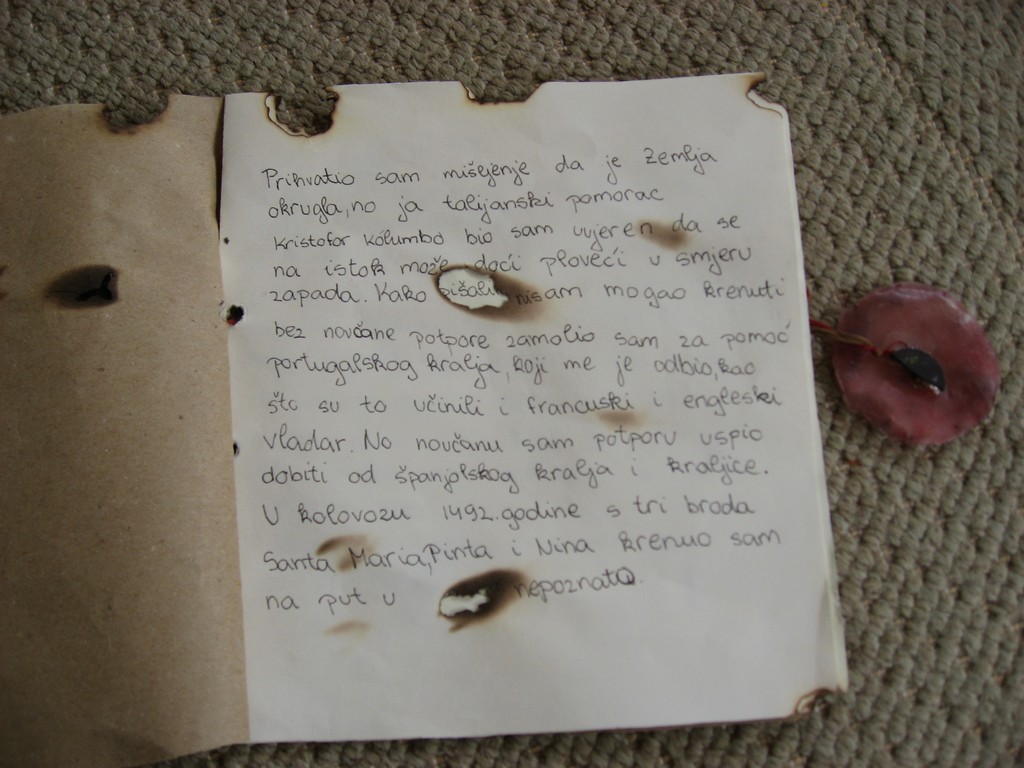 Prihvatio sam mišljenje da je Zemlja
okrugla, no ja talijanski pomorac
Kristofor Kolumbo bio sam uvjeren da se
na istok može doći ploveći u smjeru
zapada. Kako nisam mogao krenuti
bez novčane potpore zamolio sam za pomoć
portugalskog kralja, koji me je odbio, kao
što su to učinili i francuski i engleski
vladar. No novčanu sam potporu uspio
dobiti od španjolskog kralja i kraljice.
U kolovozu 1492. godine s tri broda
Santa Maria, Pinta i Nina krenuo sam
na put u nepoznato.